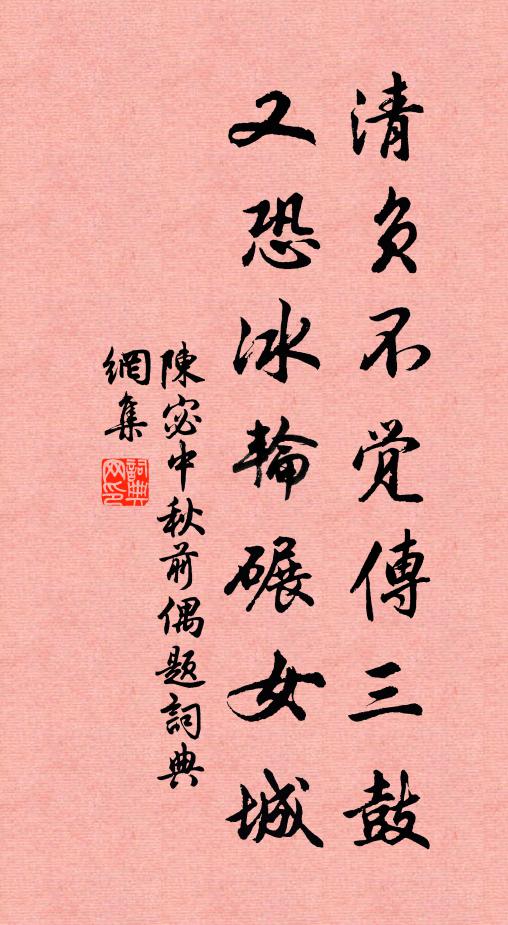 清負不觉傳三鼓
又恐冰輪碾女城
陳宓中秋前偶題詞典
網集
詞典网印